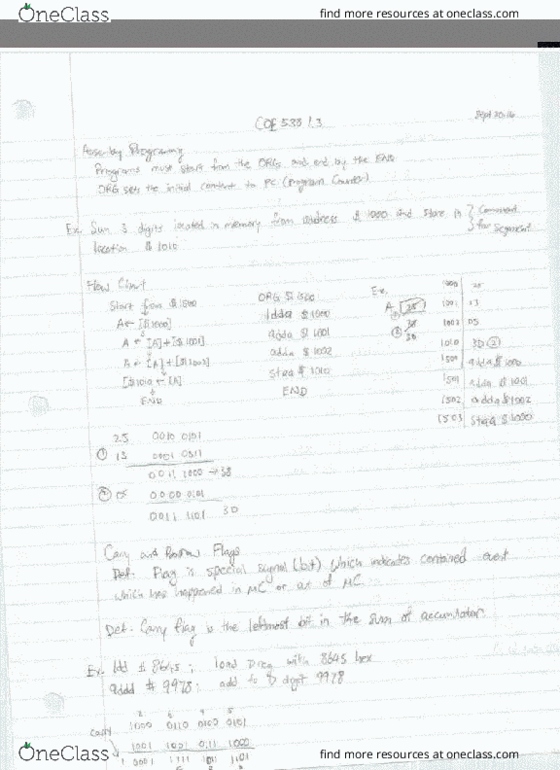 OneClass
find more resources at oneclass.com
COE 538 1.3
Sept 20.16
Assembly Programing
Programs must start from the ORG and end by the END
ORG sets the initial content to PC (Program Counter)
Ex. Sum 3 digits located in memory from address $ 1000 and store in
location $ 1010
for Segment
Flow Chart
Start from $1500
A← [$1000]
A ← [A]+[$1001]
[$1010 ← [A]
END
ORG $1500
ldda $ 1000
adda $ 1001
adda $ 1002
staa $ 1010
END
Ex.
A 25
1000 25
1001 13
1002 05
1010 3D (2)
1500 adda $ 1000
1501 adda $ 1001
1502 adda $ 1002
1503 staa $ 1000
25 0010 0101
① 13
0011 1000 → 38
② 05 0000 0101
0011 1101 3D
Carry and Borrow Flags
Def. Flag is special signal (bit) which indicates contained event
which has happened in MC or out of MC
Def. Carry flag is the leftmost bit in the sum of accumulator.
Ex. ldd # 8645; load D reg with 8645 hex
addd # 9978; add to D digit 9978
carry
1000 0110 0100 0101
1001 1001 0111 1000
1 0001 1111 1011 1101
OneClass
find more resources at oneclass.com